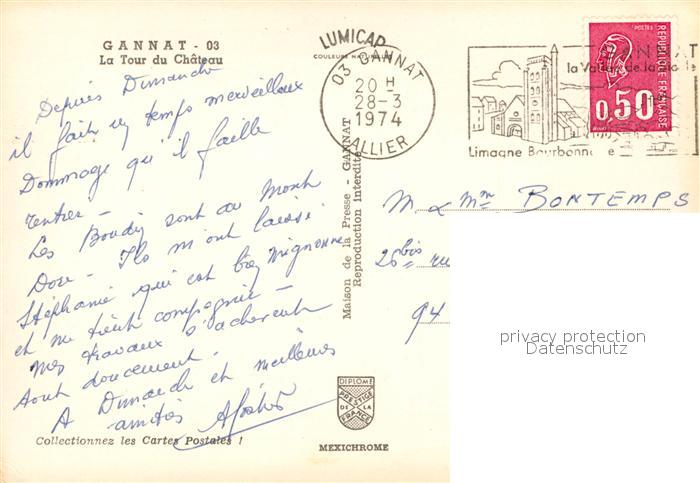 GANNAT - 03
La Tour du Château
LUMICAP
COULEURS NATURELLES
Depuis Dimanche
il fait un temps merveilleux
Dommage qu'il faille
rentrer -
Les Boudin sont au Mont
Dore - Ils m'ont laissé
Stéphanie qui est bien Mignonne
et me tient compagnie -
Mes travaux s'achèvent
tout doucement.
A Dimanche et meilleures
amitiés
Collectionnez les Cartes Postales !
Maison de la Presse - GANNAT
Reproduction interdite
DIPLOME
PRESTIGE
DE LA
FRANCE
MEXICHROME
03 GANNAT
20 H
28-3
1974
ALLIER
GANNAT
la Vallée de la
Limagne Bourbonn e
POSTES
REPUBLIQUE FRANÇAISE
0,50
M & Mme BONTEMPS
28bis ru
94
privacy protection
Datenschutz